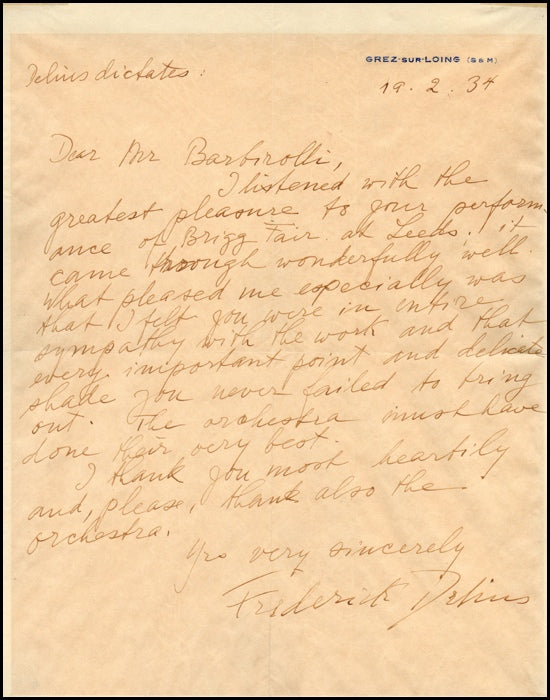 GREZ-SUR-LOING (S & M)
Delius dictates:
19. 2. 34
Dear Mr Barbirolli,
I listened with the
greatest pleasure to your perform-
ance of Brigg Fair at Leeds. it
came through wonderfully well.
What pleased me especially was
that I felt you were in entire
sympathy with the work and that
every important point and delicate
shade you never failed to bring
out. The orchestra must have
done their very best.
I thank you most heartily
and, please, thank also the
orchestra.
Yrs very sincerely
Frederick Delius